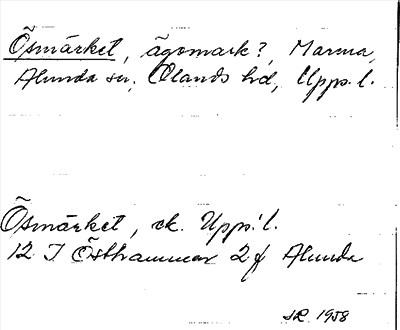 Ösmärket, ägomark?, Marma,
Alunda sn, Olands hd, Upps. l.
Ösmärket, ek. Upps. l.
12 I Östhammar 2 f Alunda
1958